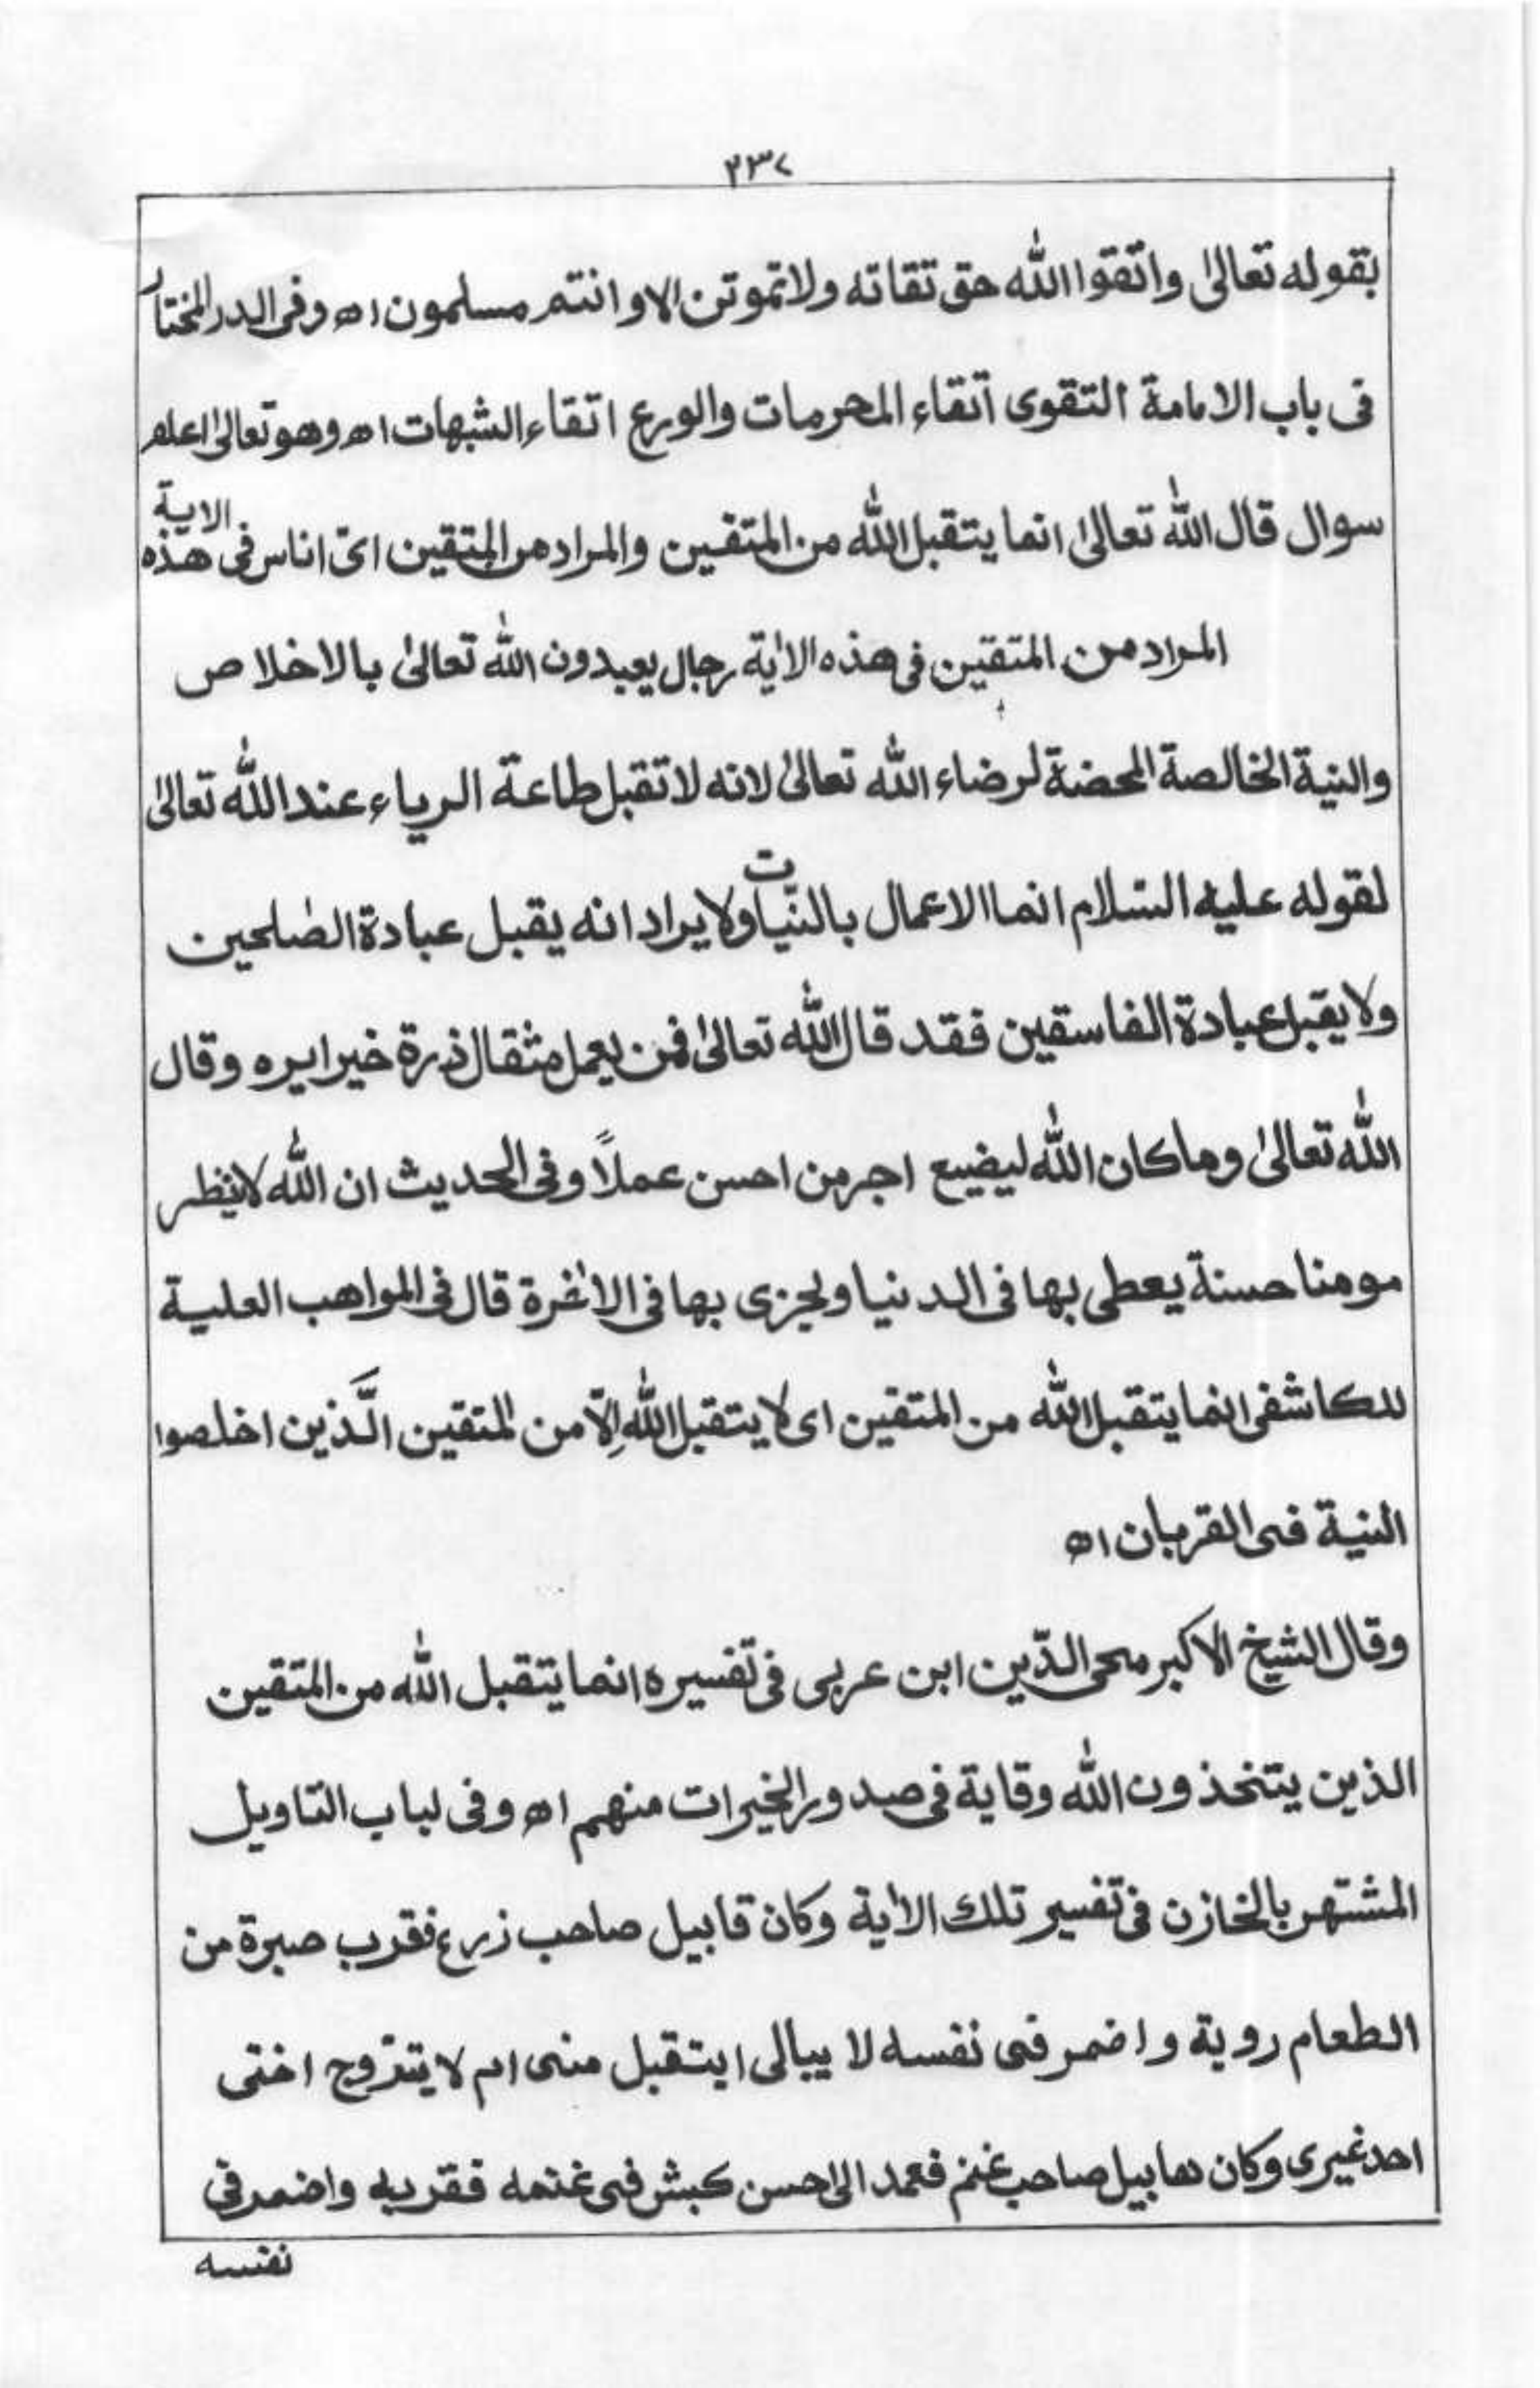 ٢٣٧
بقوله تعالىٰ واتقوا الله حق تقاته ولا تموتن الا وانتم مسلمون اه وفى الدر المختار
فى باب الامامة التقوى اتقاء المحرمات والورع اتقاء الشبهات اه وهو تعالىٰ اعلم
سوال قال الله تعالىٰ انما يتقبل الله من المتقين والمراد من المتقين اىّ اناس فى هذه الاية
المراد من المتقين فى هذه الاٰية رجال يعبدون الله تعالىٰ بالاخلاص
والنية الخالصة المحضة لرضاء الله تعالىٰ لانه لا تقبل طاعة الرياء عند الله تعالىٰ
لقوله عليه السّلام انما الاعمال بالنيّات ولا يراد انه يقبل عبادة الصٰلحين
ولا يقبل عبادة الفاسقين فقد قال الله تعالىٰ فمن يعمل مثقال ذرة خيرا يره وقال
الله تعالىٰ وما كان الله ليضيع اجر من احسن عملاً وفى الحديث ان الله لا ينظر
مومنا حسنة يعطى بها فى الدنيا ويجزى بها فى الاٰخرة قال فى المواهب العلية
للكاشفى انما يتقبل الله من المتقين اى لا يتقبل الله اِلّا من المتقين الَّذين اخلصوا
النية فى القربان اه
وقال الشيخ الاكبر محى الدّين ابن عربى فى تفسيره انما يتقبل الله من المتقين
الذين يتخذون الله وقاية فى صدور الخيرات منهم اه وفى لباب التاويل
المشتهر بالخازن فى تفسير تلك الاٰية وكان قابيل صاحب زرع فقرب صبرة من
الطعام روية واضمر فى نفسه لا يبالى ايتقبل منى ام لا يتزوج اختى
احد غيرى وكان هابيل صاحب غنم فعمد الى احسن كبش فى غنمه فقربه واضمر فى
نفسه